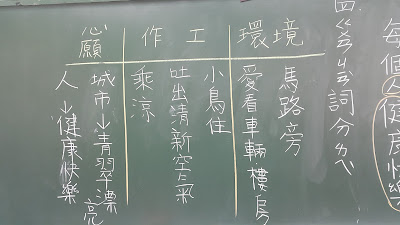 每個人健康快樂
詞分
環境
馬路旁
愛看車輛.樓房
工作
小鳥住
吐出清新空氣
乘涼
心願
城市→青翠漂亮
人→健康快樂